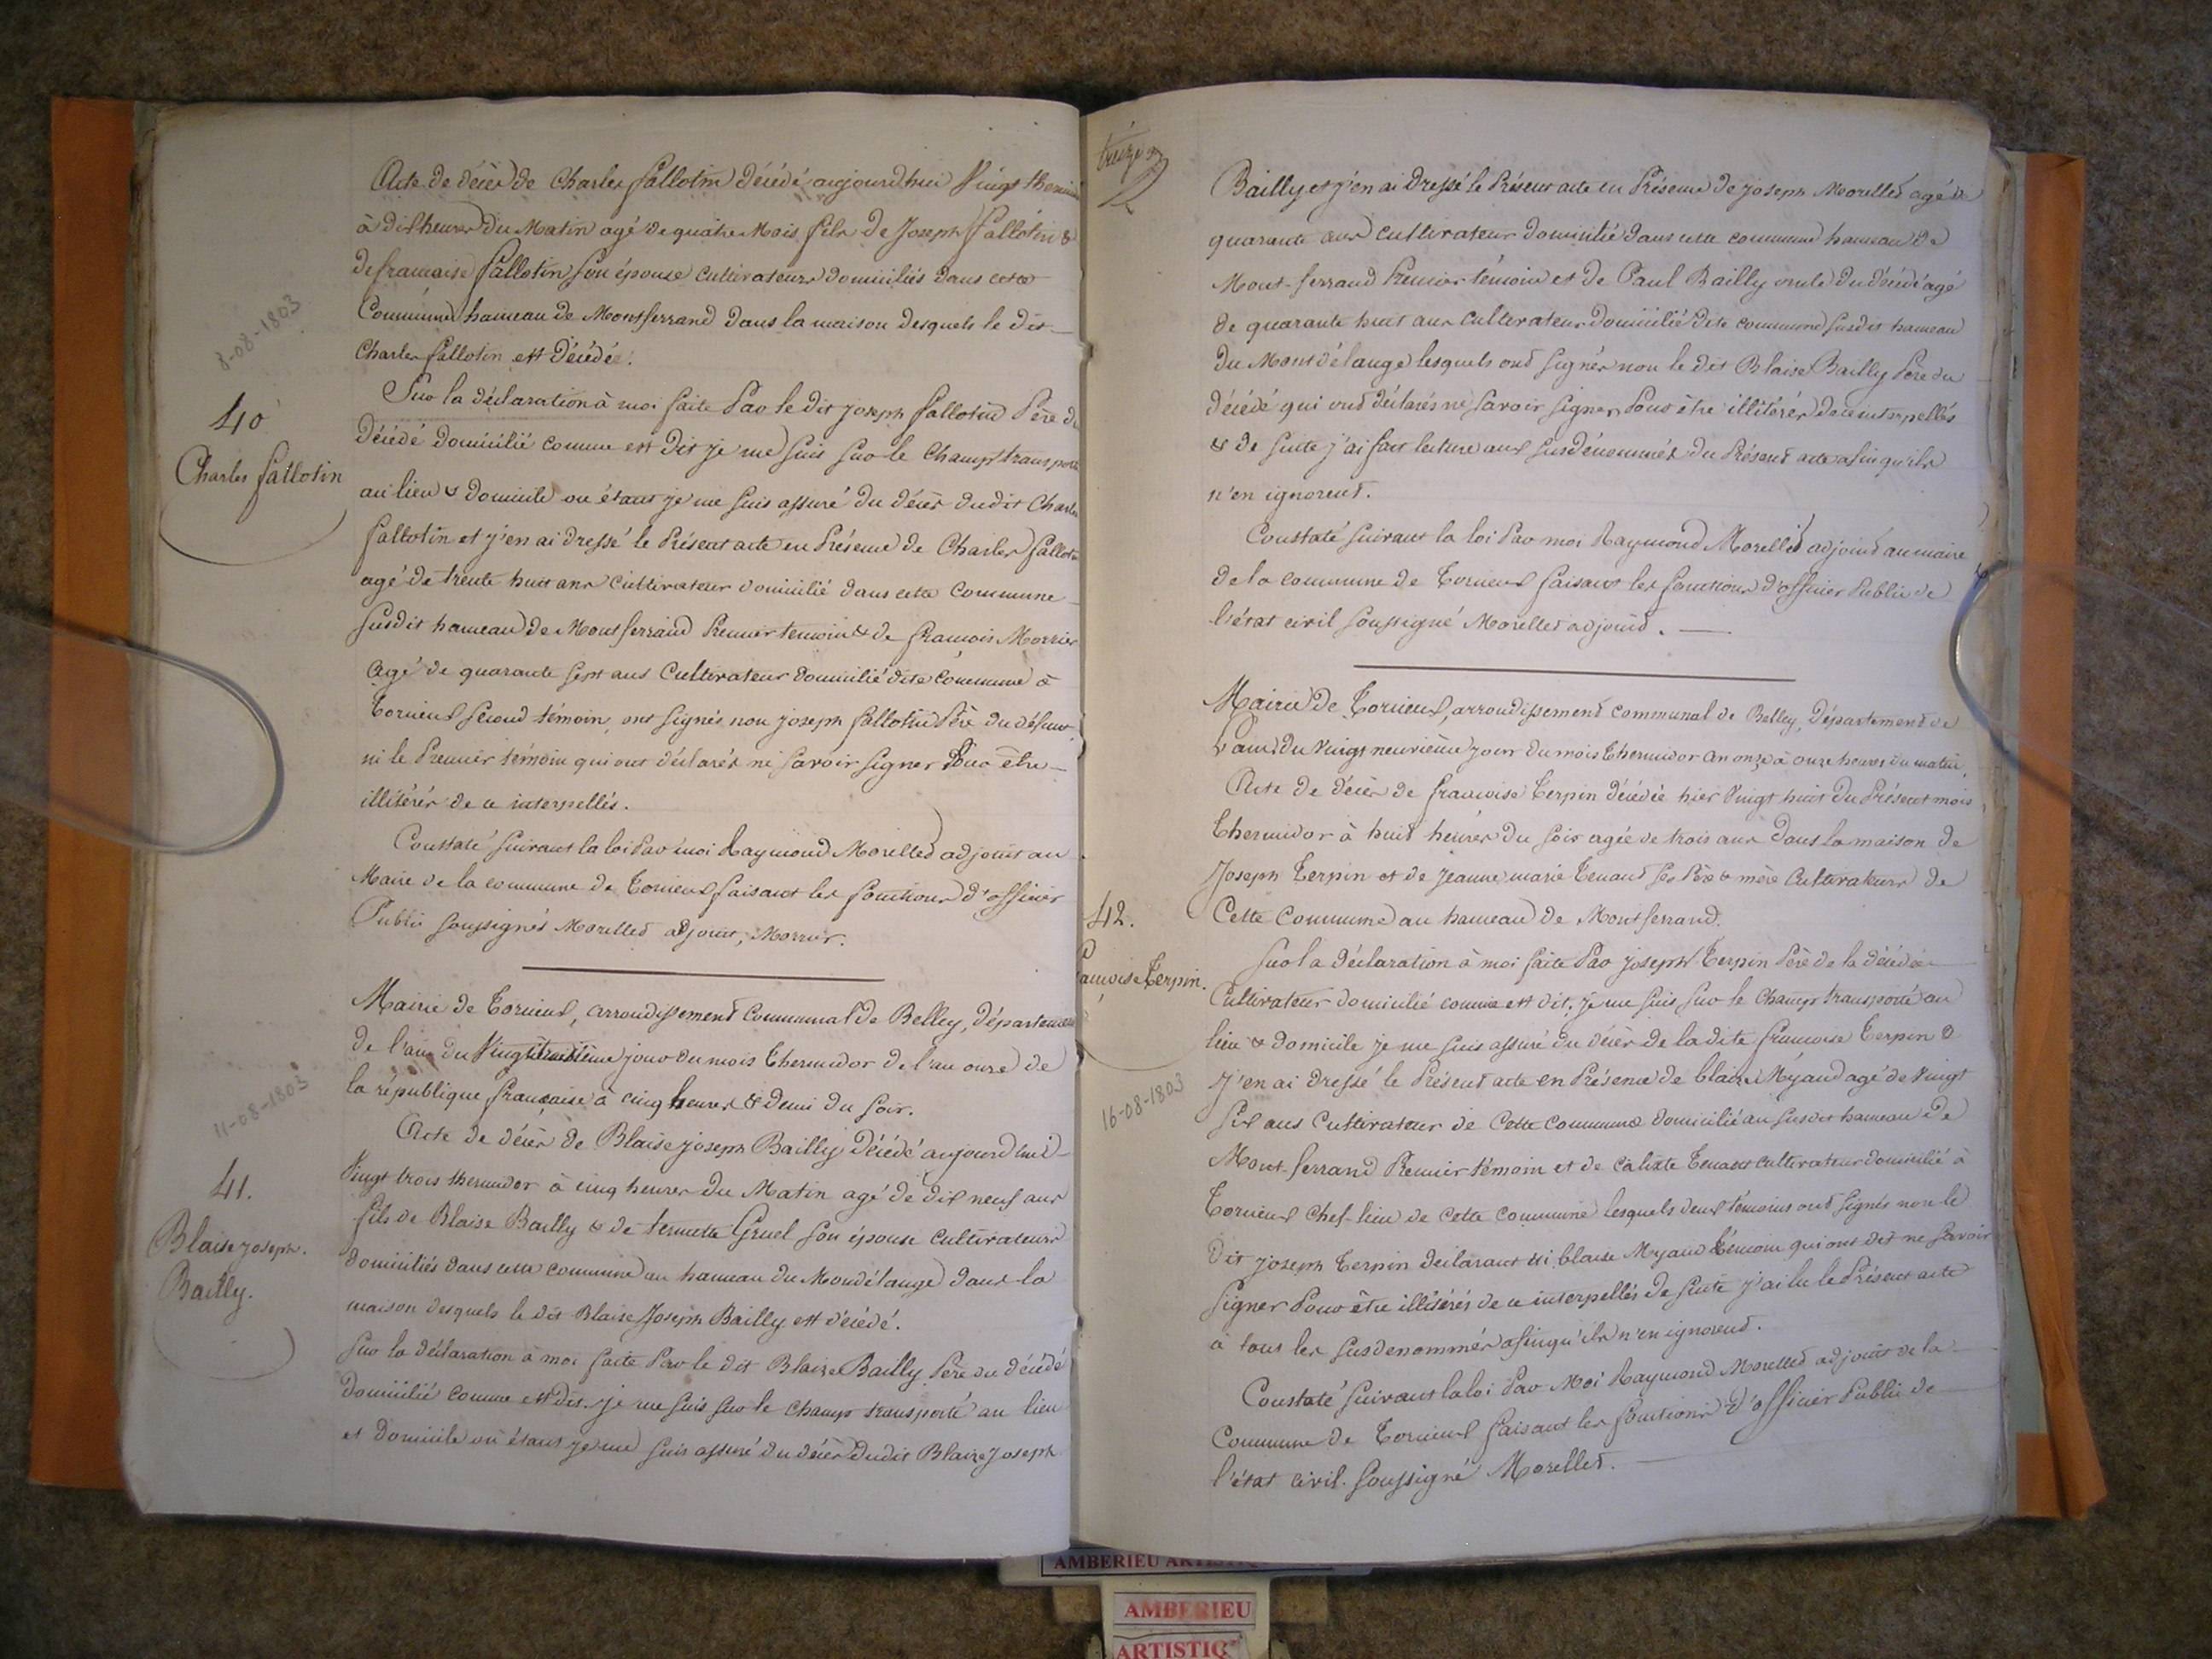 8-08-1803
40
Charles fallotin
Acte de décès de Charles fallotin décédé aujourdhui Vingt
à dix heures du Matin agé de quatre Mois fils de Joseph fallotin &
de francaise fallotin son épouse cultivateurs domiciliés dans cette
Commune hameau de Montferrand dans la maison desquels le dit
Charles fallotin est décédé.
Sur la déclaration à moi faite Par le dit joseph fallotin Père du
décédé domicilié comme est dit je me suis sur le Champt transporté
au lieu & domicile ou étant je me suis assuré du décès dudit Charles
fallotin et j'en ai dressé le Présent acte en Présence de Charles fallotin
agé de trente huit ans cultivateur domicilié dans cette Commune
susdit hameau de Montferrand Premier temoin & de francois Morrier
agé de quarante sept ans Cultivateur domicilié dite Commune à
Torcieux second témoin, ont signés non joseph fallotin Père du défunt
ni le Premier témoin qui ont déclarés ne savoir signer Pour être
illitérés de ce interpellés.
Constaté suivant la loi Par moi Raymond Morelled adjoint au
Maire de la commune de Torcieux faisant les fonctions d'officier
Public soussignés Morelled adjoint, Morrier.
11-08-1803
41.
Blaise joseph.
Bailly.
Mairie de Torcieux, arrondissement Communal de Belley, département
de l'ain du Vingt troisième jour du mois Thermidor de l'an onze de
la république francaise à cinq heures & demi du soir.
Acte de décès de Blaise joseph Bailly décédé aujourdhui
Vingt trois thermidor à cinq heures du Matin agé de dix neuf ans
fils de Blaise Bailly & de Gruel son épouse cultivateurs
domiciliés dans cette commune au hameau du Mondélange dans la
maison desquels le dit Blaise Joseph Bailly est décédé.
Sur la déclaration à moi faite Par le dit Blaise Bailly Père du décédé
domicilié comme est dit. je me suis sur le champt transporté au lieu
et domicile où étant je me suis assuré du décès dudit Blaize Joseph
treize
Bailly et j'en ai dressé le Présent acte en Présence de joseph Morelled agé de
quarante ans cultivateur domicilié dans cette commune hameau de
Mont-ferrand Premier témoin et de Paul Bailly oncle du décédé agé
de quarante huit ans cultivateur domicilié dite commune susdit hameau
du Montdélange lesquels ont signés non le dit Blaise Bailly Père du
décédé qui ont déclarés ne savoir signer Pour être illitérés de ce interpellés
& de suite j'ai fait lecture aux susdénommés du Présent acte afin qu'ils
n'en ignorent.
Constaté suivant la loi Par moi Raymond Morelled adjoint au maire
de la commune de Torcieux faisant les fonctions d'officier Public de
l'état civil soussigné Morelled adjoint.
42.
Terpin.
16-08-1803
Mairie de Torcieux, arrondissement communal de Belley, Département de
l'ain, du Vingt neuvième jour du mois Thermidor an onze à onze heures du matin,
Acte de décès de francoise Terpin décédée hier Vingt huit du Présent mois
Thermidor à huit heures du soir agée de trois ans dans la maison de
Joseph Terpin et de Jeanne marie Tenand ses Père & mère Cultivateurs de
Cette Commune au hameau de Montferrand.
Sur la déclaration à moi faite Par joseph Terpin Père de la décédée
Cultivateur domicilié comme est dit, je me suis sur le Champt transporté au
lieu & domicile je me suis assuré du décès de la dite francoise Terpin &
j'en ai dressé le Présent acte en Présence de blaize Myand agé de Vingt
six ans Cultivateur de Cette Commune domicilié au susdit hameau de
Mont-ferrand Premier témoin et de calixte Tenand cultivateur domicilié à
Torcieux Chef-lieu de Cette commune lesquels deux témoins ont signés non le
dit joseph Terpin déclarant ni blaise Myand témoin qui ont dit ne savoir
signer Pour être illitérés de ce interpellés de suite j'ai lu le Présent acte
à tous les susdenommés afin qu'ils n'en ignorent.
Constaté suivant la loi Par Moi Raymond Morelled adjoint de la
Commune de Torcieux faisant les fonctions d'officier Public de
l'état civil. soussigné Morelled.
AMBERIEU
AMBERIEU
ARTISTIQ